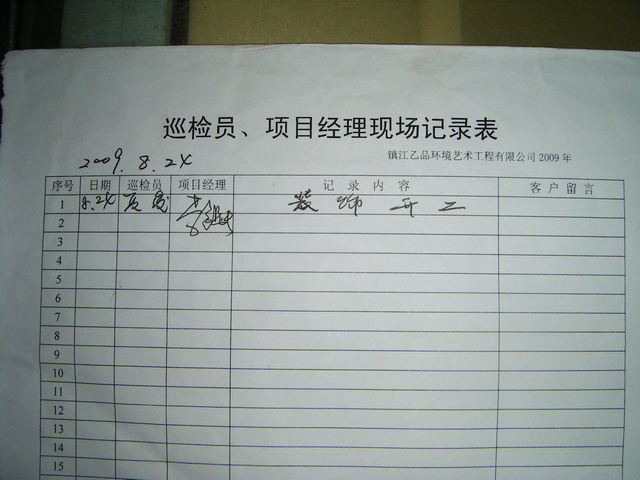 巡检员、项目经理现场记录表
2009.8.24
镇江乙品环境艺术工程有限公司2009年
序号 日期 巡检员 项目经理 记录内容 客户留言
1 8.24 装饰开工
2
3
4
5
6
7
8
9
10
11
12
13
14
15